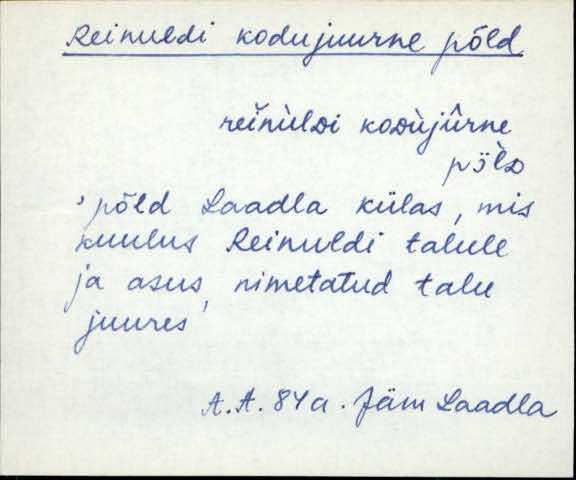 Reinuldi kodujuurne põld
reĭnùlᴅi koᴅùjûrne
pɜ̈̀lᴅ
'põld Laadla külas, mis
kuulus Reinuldi talule
ja asus nimetatud talu
juures'
A.A. 84 a. Jäm Laadla